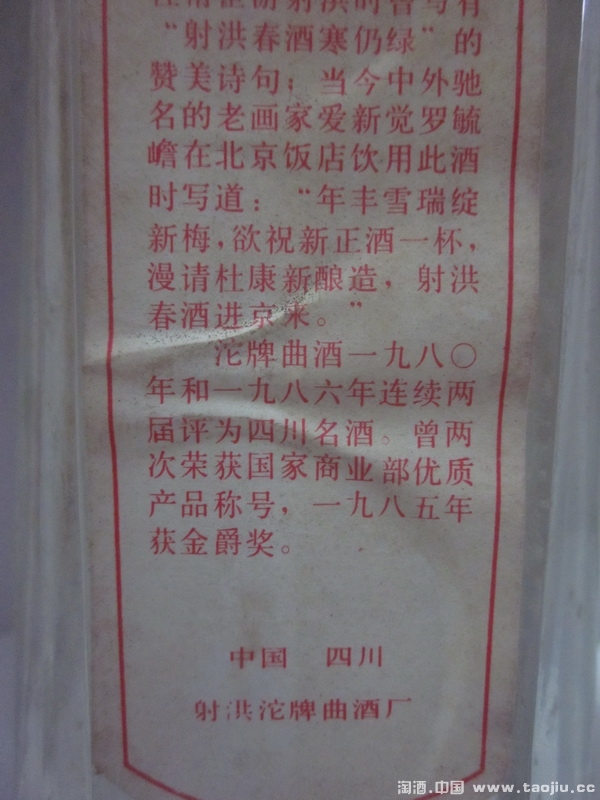 “射洪春酒寒仍绿”的
赞美诗句；当今中外驰
名的老画家爱新觉罗毓
嶦在北京饭店饮用此酒
时写道：“年丰雪瑞绽
新梅，欲祝新正酒一杯，
漫请杜康新酿造，射洪
春酒进京来。”
沱牌曲酒一九八〇
年和一九八六年连续两
届评为四川名酒。曾两
次荣获国家商业部优质
产品称号，一九八五年
获金爵奖。
中国 四川
射洪沱牌曲酒厂
淘酒.中国 www.taojiu.cc